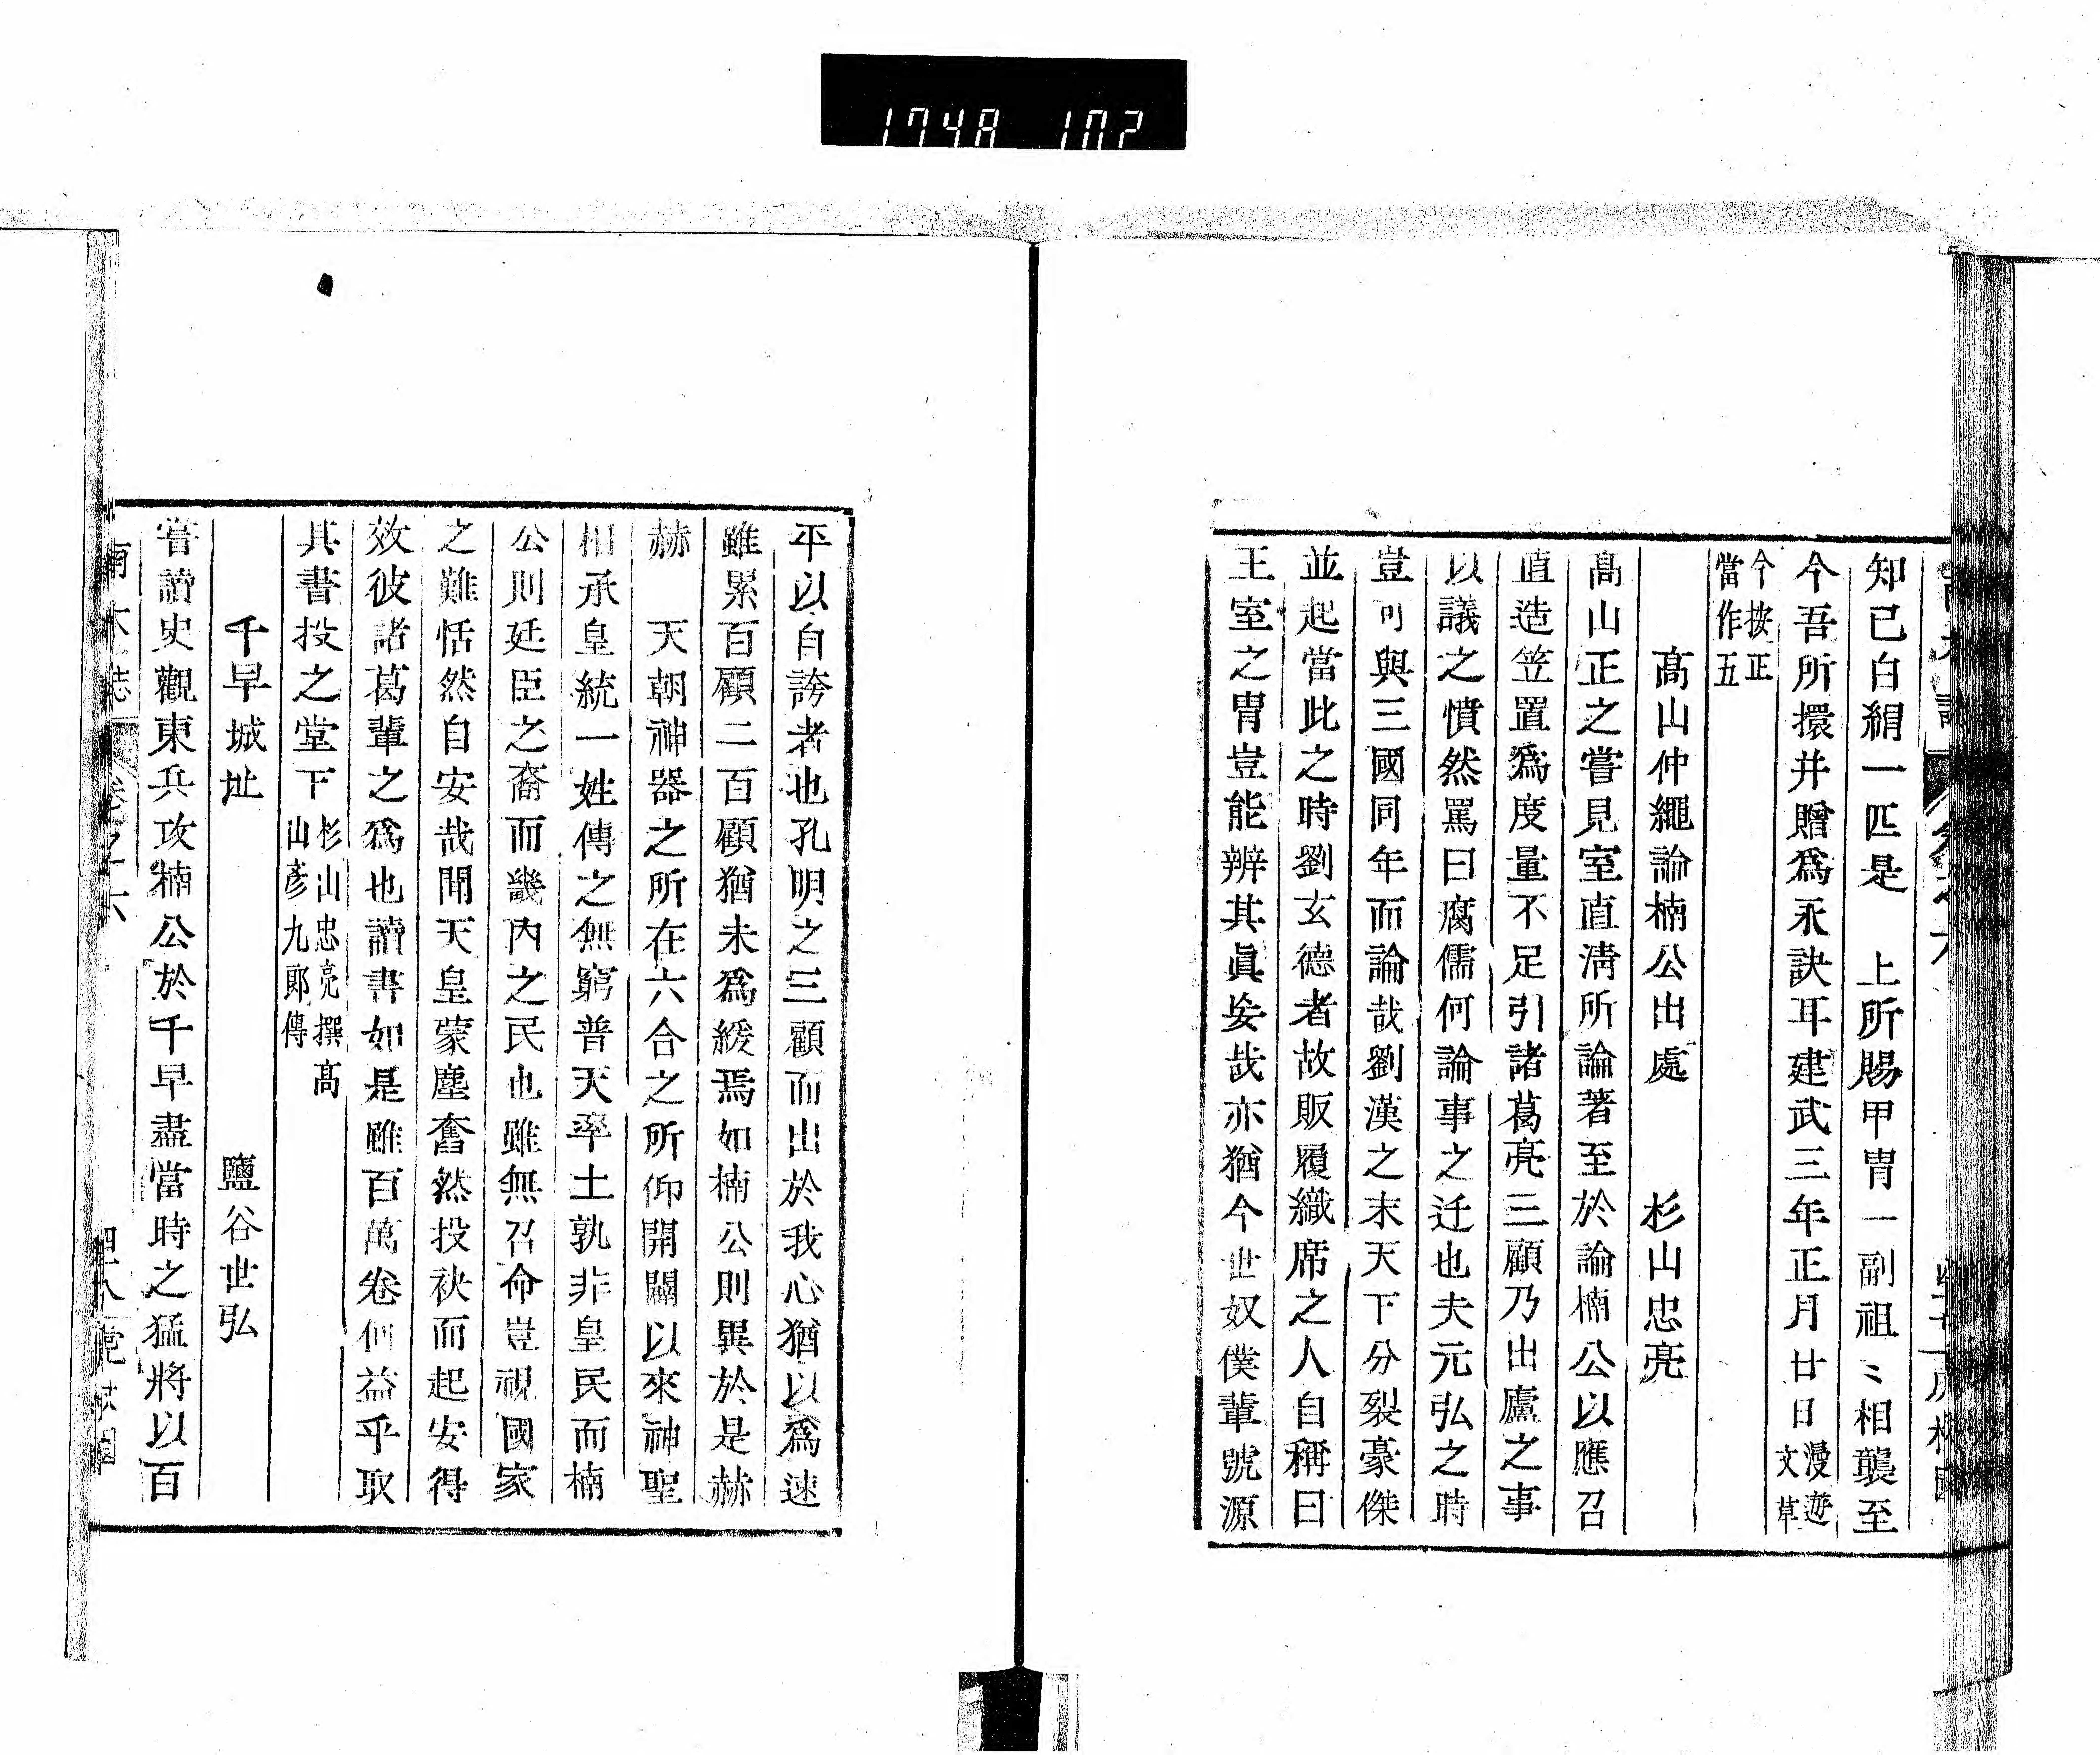 1748 102
知己白絹一匹是　上所賜甲冑一副祖〻相襲至
今吾所擐并贈爲永訣耳建武三年正月廿日漫遊文草
今按正當作五
高山仲繩論楠公出處　杉山忠亮
高山正之嘗見室直淸所論著至於論楠公以應召
直造笠置爲度量不足引諸葛亮三顧乃出廬之事
以議之憤然罵曰腐儒何論事之迂也夫元弘之時
豈可與三國同年而論哉劉漢之末天下分裂豪傑
並起當此之時劉玄德者故販履織席之人自稱曰
王室之冑豈能辨其眞妄哉亦猶今世奴僕輩號源
平以自誇者也孔明之三顧而出於我心猶以爲速
雖累百顧二百顧猶未爲緩焉如楠公則異於是赫
赫　天朝神器之所在六合之所仰開闢以來神聖
相承皇統一姓傳之無窮普天率土孰非皇民而楠
公則廷臣之裔而畿内之民也雖無召命豈視國家
之難恬然自安哉聞天皇蒙塵奮然投袂而起安得
效彼諸葛輩之爲也讀書如是雖百萬卷何益乎取
其書投之堂下杉山忠亮撰高山彥九郎傳
千早城址　鹽谷世弘
嘗讀史觀東兵攻楠公於千早盡當時之猛將以百
南木誌　卷之六